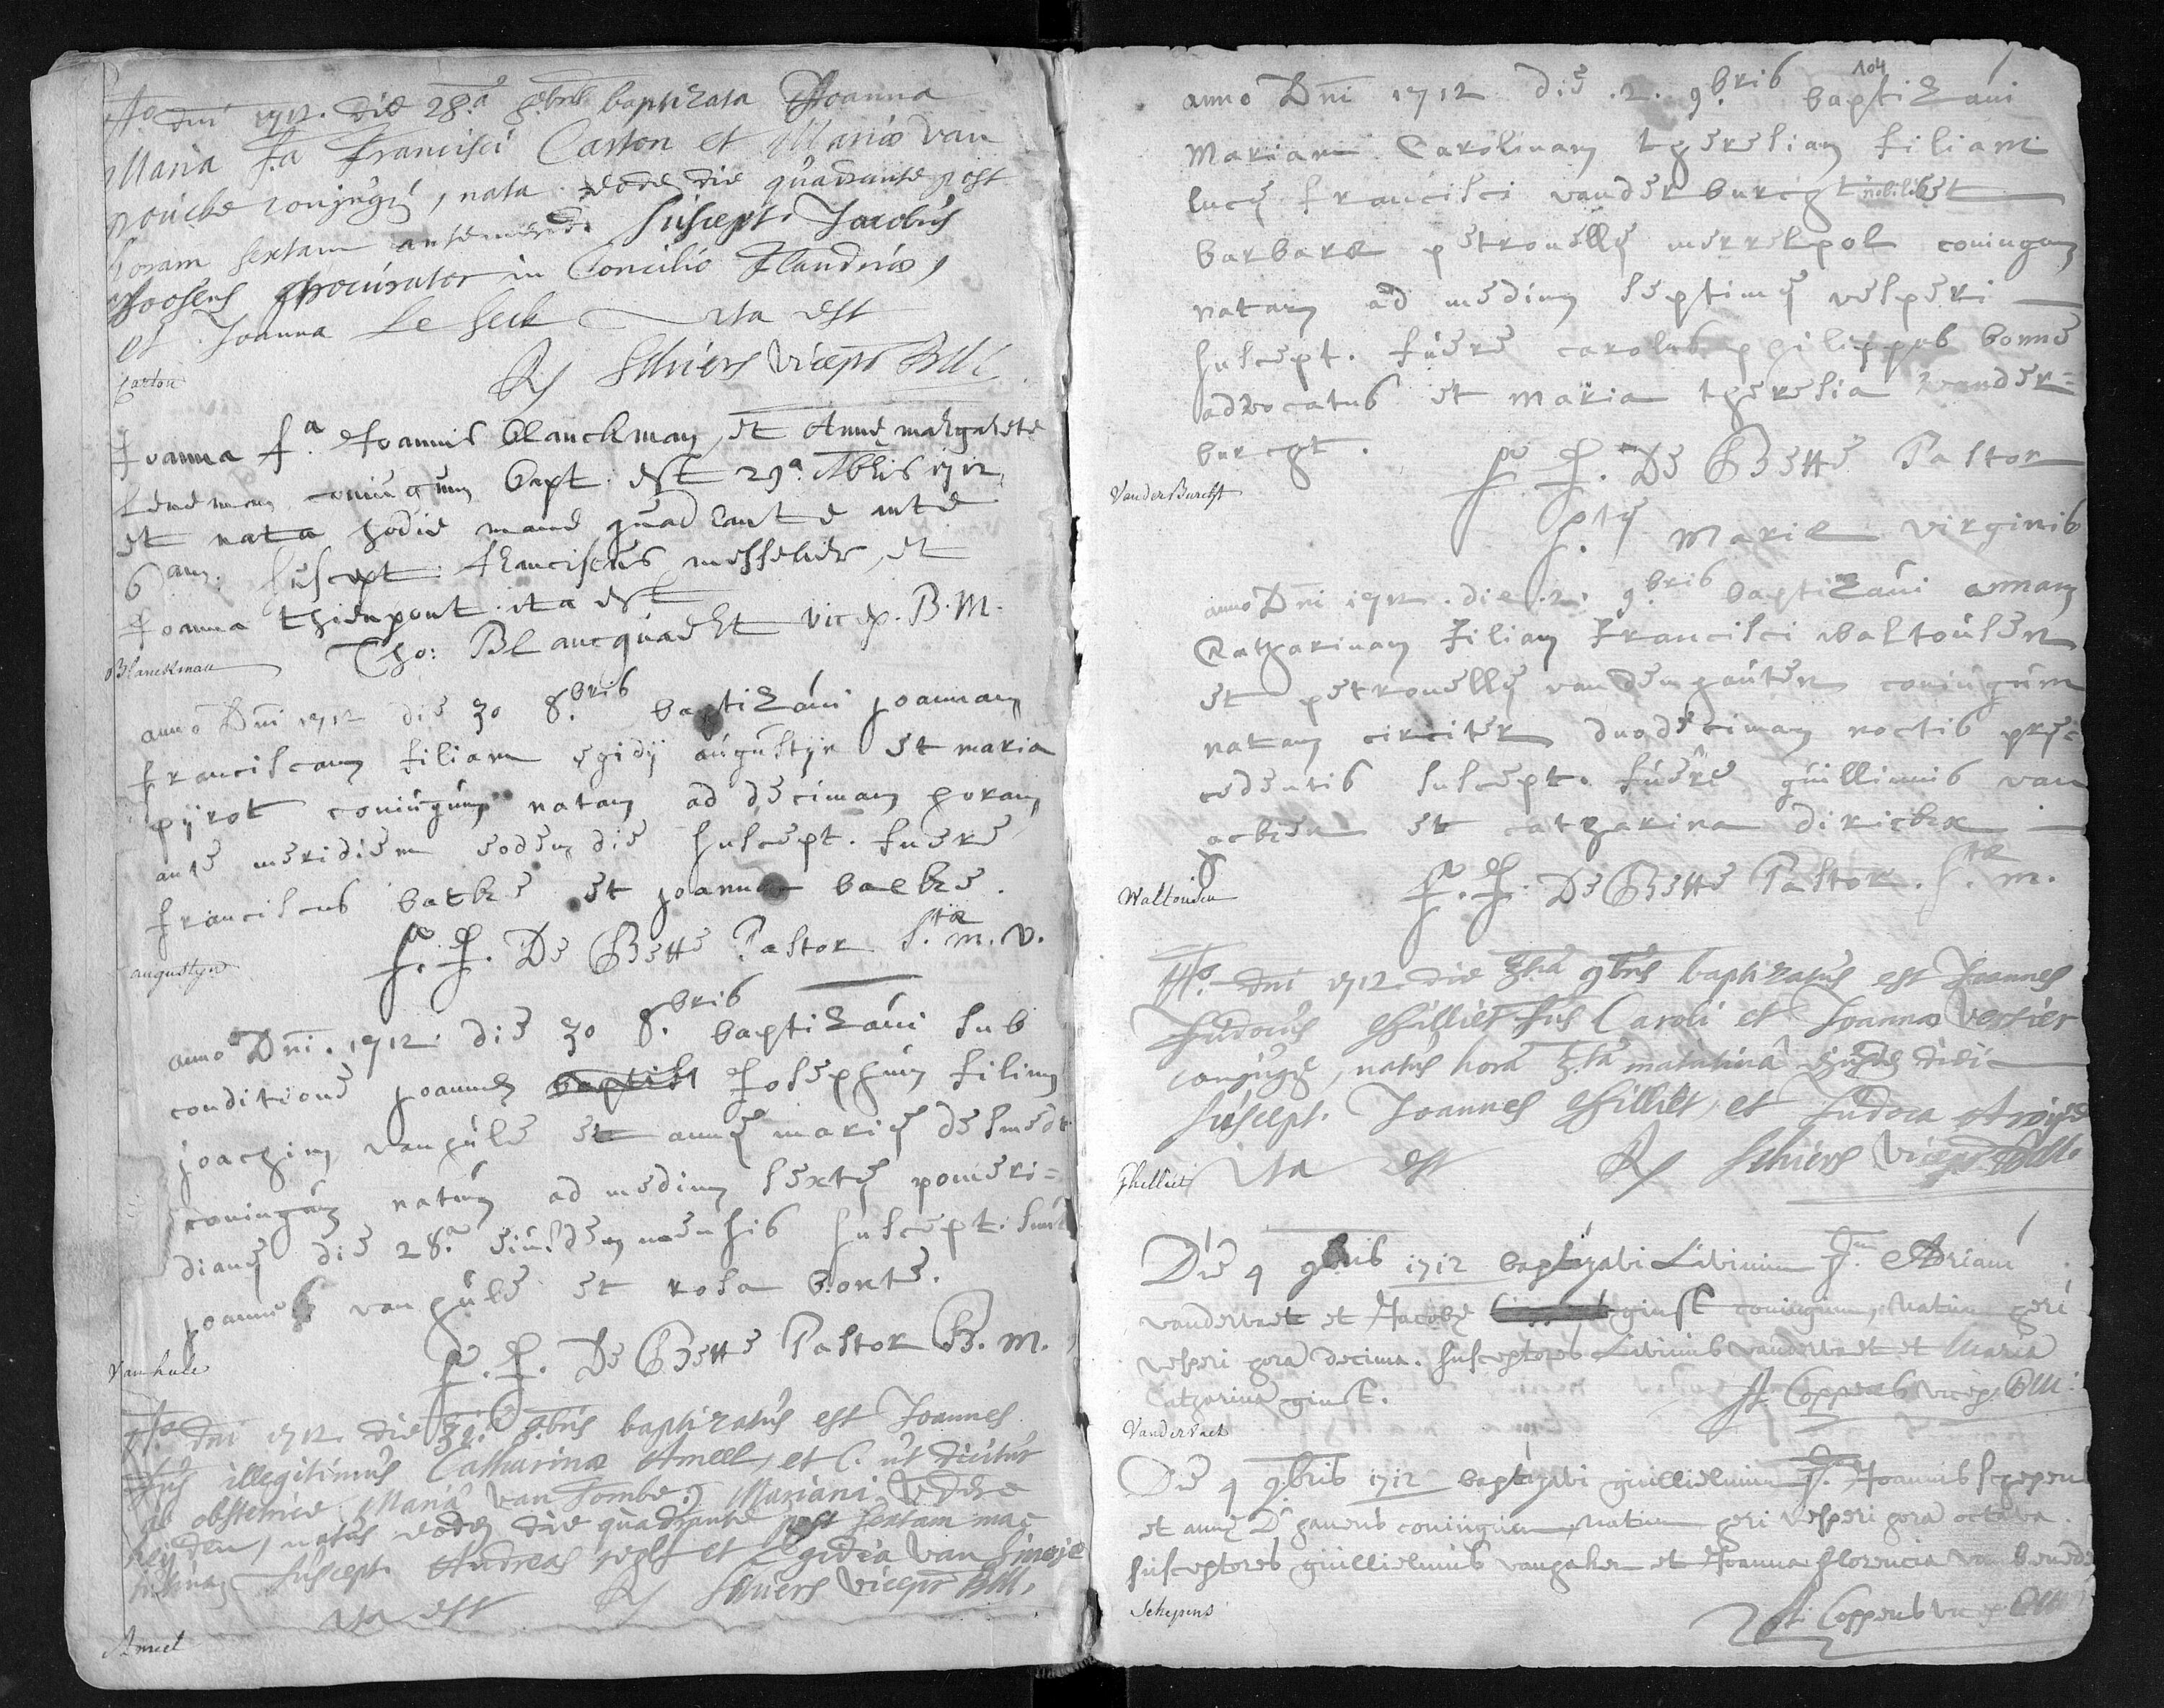 Ao dni 1712. die 28.a 8bris baptizata Joanna
Maria fa Francisci Carton et Mariæ van
conjugū, nata eodē die quadrante post
horam sextam antemerid. suscept. Jacobus
Goosens procurator in Concilio Flandriæ,
et Joanna Le Seck ita est
Carton
Schiers vicepr BMV
Joanna f.a Joannis Blanckman, et Annę margarete
coniugum bapt. est 29.a 8bris 1712
et nata hodie mane quadrante ante
6am. suscept. franciscus messeher, et
Joanna thienpont. ita est
Tho: Blancquaert vicep. B.M.
Blanckman
anno Dni 1712 die 30 8.bris baptizavi joannam
franciscam filiam egidij augustijn et maria
pijrot coniugum natam ad decimam horam
ante meridiem eodem die suscept. fuere
franciscus batke et joanna baelke.
F. F. De Bette Pastor S.tæ m. v.
augustyn
anno Dni. 1712. die 30 8.bris baptizavi sub
conditione joannem baptist Josephum filium
joachim vanhule et annę marię desmedt
coniugum natum ad medium sextę pomeri=
dianę die 28.a eiusdem mensis suscept. sunt
joannes vanhule et rosa bonte.
F. F. De Bette Pastor B. m.
Vanhule
Ao dni 1712 die 31. 8.bris baptizatus est Joannes
fus illegitimus Catharinæ Ameel, et (. ut dicitur
ab obstetrice Maria van Tombe.) Mariani
natus eodē die quadrante post sextam ma=
tutinam suscept. Andreas et Egidia van Sinaye
ita est Schiers vicepr BMV.
Ameel
104
anno Dni 1712 die .2. 9.bris baptizavi
Mariam Carolinam theresiam filiam
lucę francisci vanderburcht nobilis et
barbaræ petronellę merrelpol coniugum
natam ad medium septimę vesperi
suscept. fuere carolus philippus bonne
advocatus et maria theresia vander=
burcht.
F. F. De Bette Pastor
S.tę Mariæ virginis
VanderBurcht
anno Dni 1712. die .2. 9.bris baptizavi annam
Catharinam filiam Francisci waltousen
et petronellę vandenhauten coniugum
natam circiter duodecimam noctis prę=
cedentis suscept. fuere guillimus van
acken et catharina dirickx
F. F. De Bette Pastor. S.tæ m.
Waltousen
Ao dni 1712 die 3tia 9bris baptizatus est Joannes
Judocus Ghilliet fus Caroli et Joannæ Versier
conjugū, natus hora 3.tia matutina ejusdē diei
suscept. Joannes Ghilliet, et Judoca
ita est Schiers vicepr BMV.
Ghilliet
Die 4 9bris 1712 baptizavi Livinum f.um Adriani
vandervaet et Jacobę ginst coniugum, natum heri
vesperi hora decima. susceptores Livinus vandervaet et Maria
Catharina ginst.
A. Coppens vicep. BM.
Vandervaet
Die 4 9.bris 1712 baptizavi guillielmum f. Joannis schepens
et annę D'hanens coniugum, natum heri vesperi hora octava.
susceptores guillielmus vanhaken et Joanna florencia van
A. Coppens vicep BM
Schepens